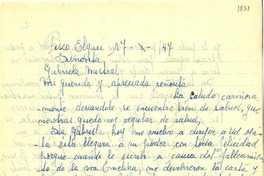 1851
Pisco Elqui, 17-X-/47
Señorita
Gabriela Mistral
Mi querida y apreciada señorita
La saludo cariñosa-
mente deseandole se encuentre bien de salud, que
nosotras quedamos regular de salud,
Sta Gabriela hoy me vuelvo a dirijir a Ud ojala
la esta llegara a su poder con toda felicidad
porque cuando le escribi a causa del fallecimiento
de la sra Emelina, me devolvieron la carta y